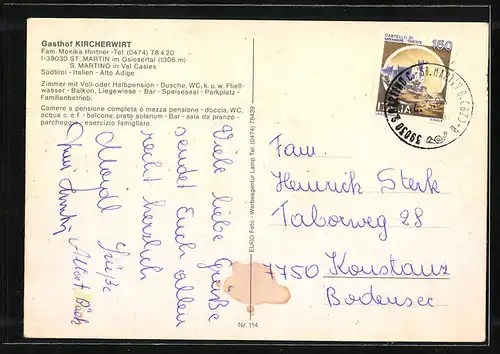 Gasthof KIRCHERWIRT
Fam. Monika Hintner - Tel. (0474) 78420
I-39030 ST. MARTIN im Gsiesertal (1306 m)
S. MARTINO in Val Casies
Südtirol - Italien - Alto Adige
Zimmer mit Voll- oder Halbpension - Dusche, WC, k. u. w. Fließ-
wasser - Balkon, Liegewiese - Bar - Speisesaal - Parkplatz -
Familienbetrieb.
Camere a pensione completa o mezza pensione - doccia, WC,
acqua c. e f. - balcone, prato solarium - Bar - sala da pranzo -
parcheggio, esercizio famigliare.
Viele liebe Grüße
sendet Euch allen
recht herzlich
EURO Foto - Werbeagentur Lamp Tel. (0474) 78439
Nr. 114
CASTELLO DI
MIRAMARE TRIESTE
150
39030 S. MARTINO
Fam.
Heinrich Sterk
Taborweg 28
7750 Konstanz
Bodensee